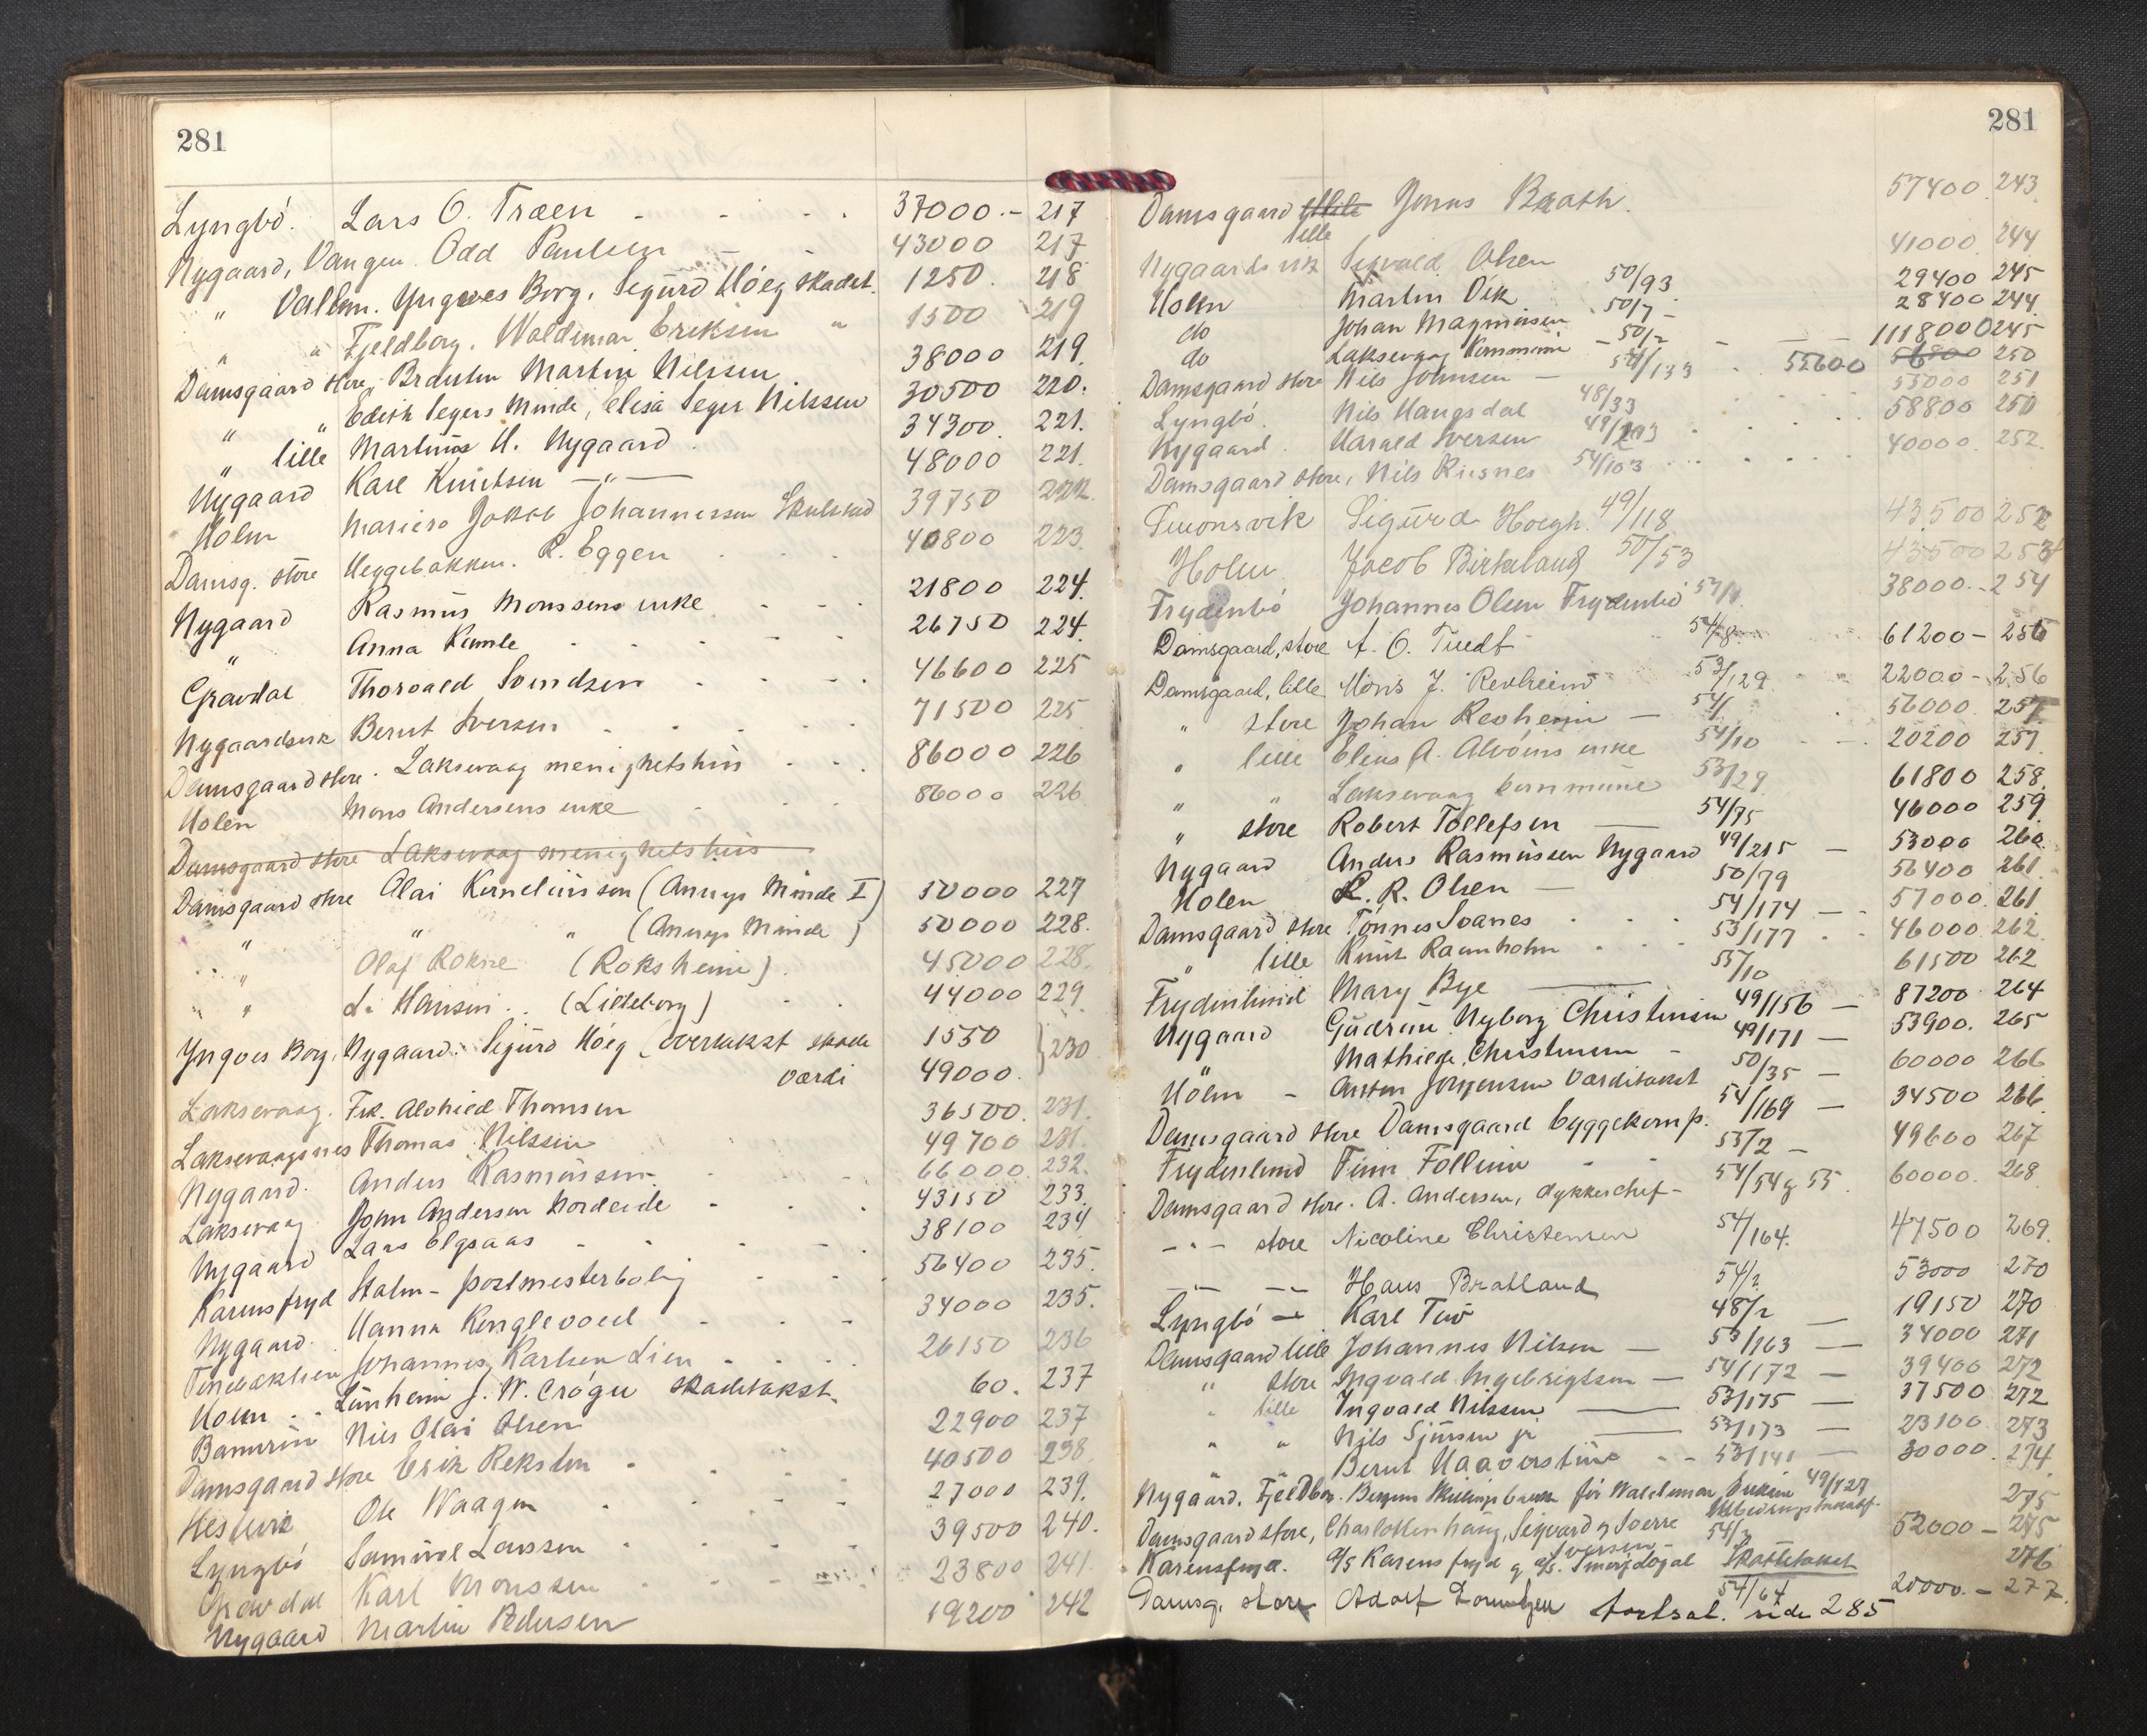 281
Lyngbö. Lars O. Træen - - - . 37000.- 217
Nygaard, Vangen Odd Paulsen 43000 217
" Valhm. Yngves Borg, Sigurd Höeg skadet. 1250. 218
" " Fjeldborg. Waldemar Eriksen " 1500 219
Damsgaard store, Martin Nilssen 38000 219
" " Edith Segers Minde, Elisa Seger Nilssen 30500 220.
" lille Martinus H. Nygaard 34300. 221.
Nygaard Karl Knutsen —"— 48000 221.
Holm Jakob Johannessen 39750 222.
Damsg. store Heggebakken. R. Eggen 40800 223.
Nygaard Rasmus Monssens enke 21800 224.
" Anna 26750 224.
Gravdal Thorvald Svendsen 46600 225
Bernt Iversen 71500 225
Damsgaard store. Laksevaag menighetshus 86000 226
Holen Mons Andersens enke 86000 226
Damsgaard store Laksevaag menighetshus
Damsgaard store Olai Korneliussen (Annys Minde I) 50000 227
" " " (Annys Minde) 50000 228.
" Olaf Rokne (Roksheim) 45000 228.
" L. Hansen. . (Lidleborg) 44000 229
Yngves Borg, Nygaard. Sigurd Höeg (overtakst skade 1550 } 230
værdi 49000.
Laksevaag. Frk. Alvhild Thomsen 36500. 231.
Laksevaagsnes Thomas Nilssen 49700 231.
Nygaard. Anders Rasmussen. 66000 232.
Laksevaag John Andersen Nordeide 43150 233.
Nygaard Lars Elgsaas 38100 234
Karensfryd Holm - postmesterbolig 56400 235.
Nygaard. Hanna Kinglevold 34000 235.
Johannes Karlsen Lien 26150 236
Holm . . J. W. Cröger skadetakst. 60. 237
Nils Olai Olsen 22900 237
Damsgaard store Erik Reksten 40500 238.
Ole Waagen 27000 239.
Lyngbö Samuel Larssen 39500 240.
Gravdal Karl Monssen 23800 241.
Nygaard Martin Pedersen 19200 242
281
Damsgaard lille Jonas Braath. 57400 243
Nygaardsvik Sigvald Olsen 41000 244
Holm Martin Vik 50/93 29400 245
do Johan Magnusen 50/7 - 28400 244
do Laksevaag Kommune - 50/2 111800 245
Damsgaard store Nils Johnsen — 54/133 52600 56800 250
Lyngbö Nils Haugsdal 48/33 55000 251
Nygaard. Harald Iversen 58800 250
Damsgaard store, Nils Risnes 54/103 40000 252
Simonsvik Sigurd Hoegh. 49/118 43500 252
Holm Jacob Birkeland 50/53 43500 253
Frydenbö Johannes Olsen Frydenbö 38000.- 254
Damsgaard, store A. O. Tuedt 54/8 61200 - 256
Damsgaard, lille Mons J. Revheim 53/129 22000 - 256
" store Johan Revheim — 54/ 56000 257
" lille Elens A. Alvöens enke 54/10 20200 257
" " Laksevaag kommune 53/29 61800 258.
" store Robert Tollefsen — 54/75 46000 259
Nygaard Anders Rasmussen Nygaard 49/215 — 53000 260
Holen L. R. Olsen — 50/79 56400 261
Damsgaard store Tönnes Soanes 54/174 57000 261
" lille Knut Raunholm 53/177 46000 262
Frydenlund Mary Bye — 55/10 61500 262
Nygaard Gudrun Nyborg Christensen 49/156 — 87200 264
" Mathilde Christensen - 49/171 — 53900. 265
Holm - Anton Jörgensen værditakst 50/35 — 60000 266
Damsgaard store Damsgaard byggekomp. 54/169 — 34500 266
Frydenlund Finn Follum 53/2 — 49600 267
Damsgaard store. A. Andersen, dykkerchef - 54/54 g 55 60000. 268
-"- store Nicoline Christensen 54/164. 47500 269.
— — Hans Bratland 54/2 53000 270
Lyngbö — Karl 48/2 — 19150 270
Damsgaard lille Johannes Nilsen — 53/163 — 34000 271
" store Ingvald Ingebrigtsen — 54/172 — 39400 272
" lille Ingvald Nilssen — 53/175 — 37500 272
" " Nils Sjursen jr — 53/173 — 23100 273
" " Bernt Haaverstine - - 53/141 — 30000. 274
Nygaard. Fjeldborg. Bergens Skillingsbank for Waldemar Eriksen 49/127 275
Damsgaard store, Charlottenhaug, Sigvard g Sverre Iversen - 54/3 52000 - 275
Karensfryd. A/S Karensfryd g a/s. Skadetakst 276
Damsg. store Adolf Lorentzen 54/64 20000. - 277.
fortsat. side 285